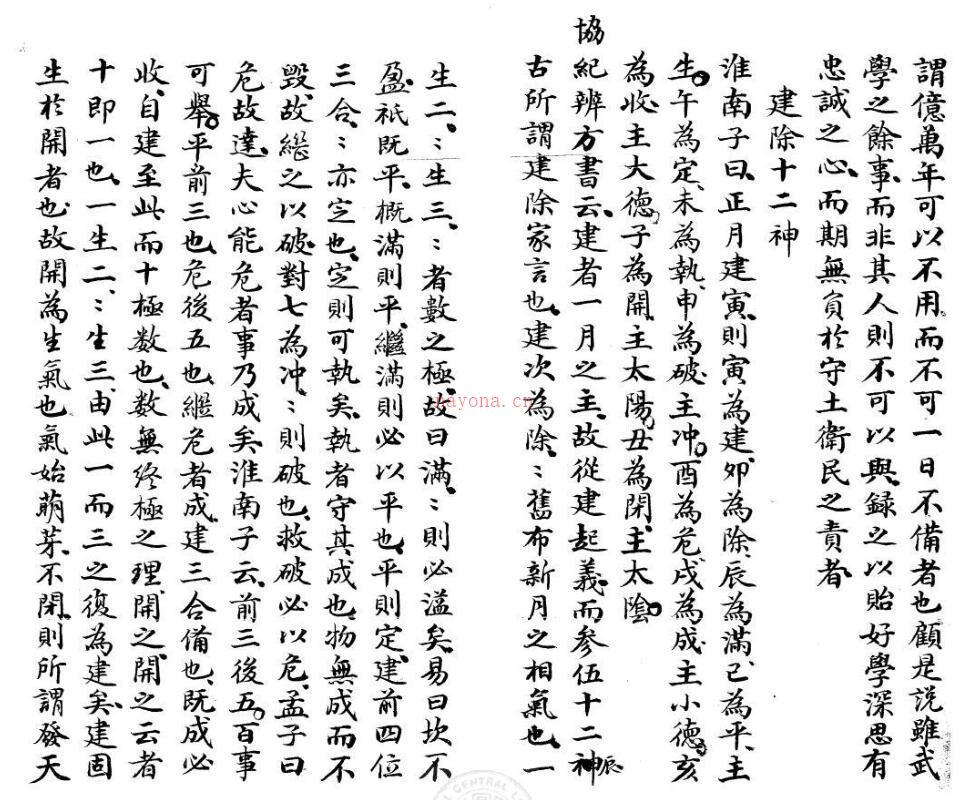 謂億萬年可以不用而不可一日不備者也顧是説雖武
學之餘事而非其人則不可以與録之以貽好學深思有
忠誠之心而期無負於守土衛民之責者
建除十二神
淮南子曰正月建寅則寅為建卯為除辰為滿已為平主
生午為定未為執申為破主冲酉為危戌為成主小德亥
為收主大德子為開主太陽丑為閉主太陰
協紀辨方書云建者一月之主故從建起義而參伍十二神辰
古所謂建除家言也建次為除〻舊布新月之相氣也一
生二〻生三〻者數之極故曰滿〻則必溢矣易曰坎不
盈祇既平概滿則平繼滿則必以平也平則定建前四位
三合〻亦定也定則可執矣執者守其成也物無成而不
毀故繼之以破對七為冲〻則破也救破必以危孟子曰
危故達夫心能危者事乃成矣淮南子云前三後五百事
可舉平前三也危後五也繼危者成建三合備也既成必
收自建至此而十極数也数無終極之理開之開之云者
十即一也一生二〻生三由此一而三之復為建矣建固
生於開者也故開為生氣也氣始萌芽不閉則所謂發天
nayona.cn
CENTRAL L